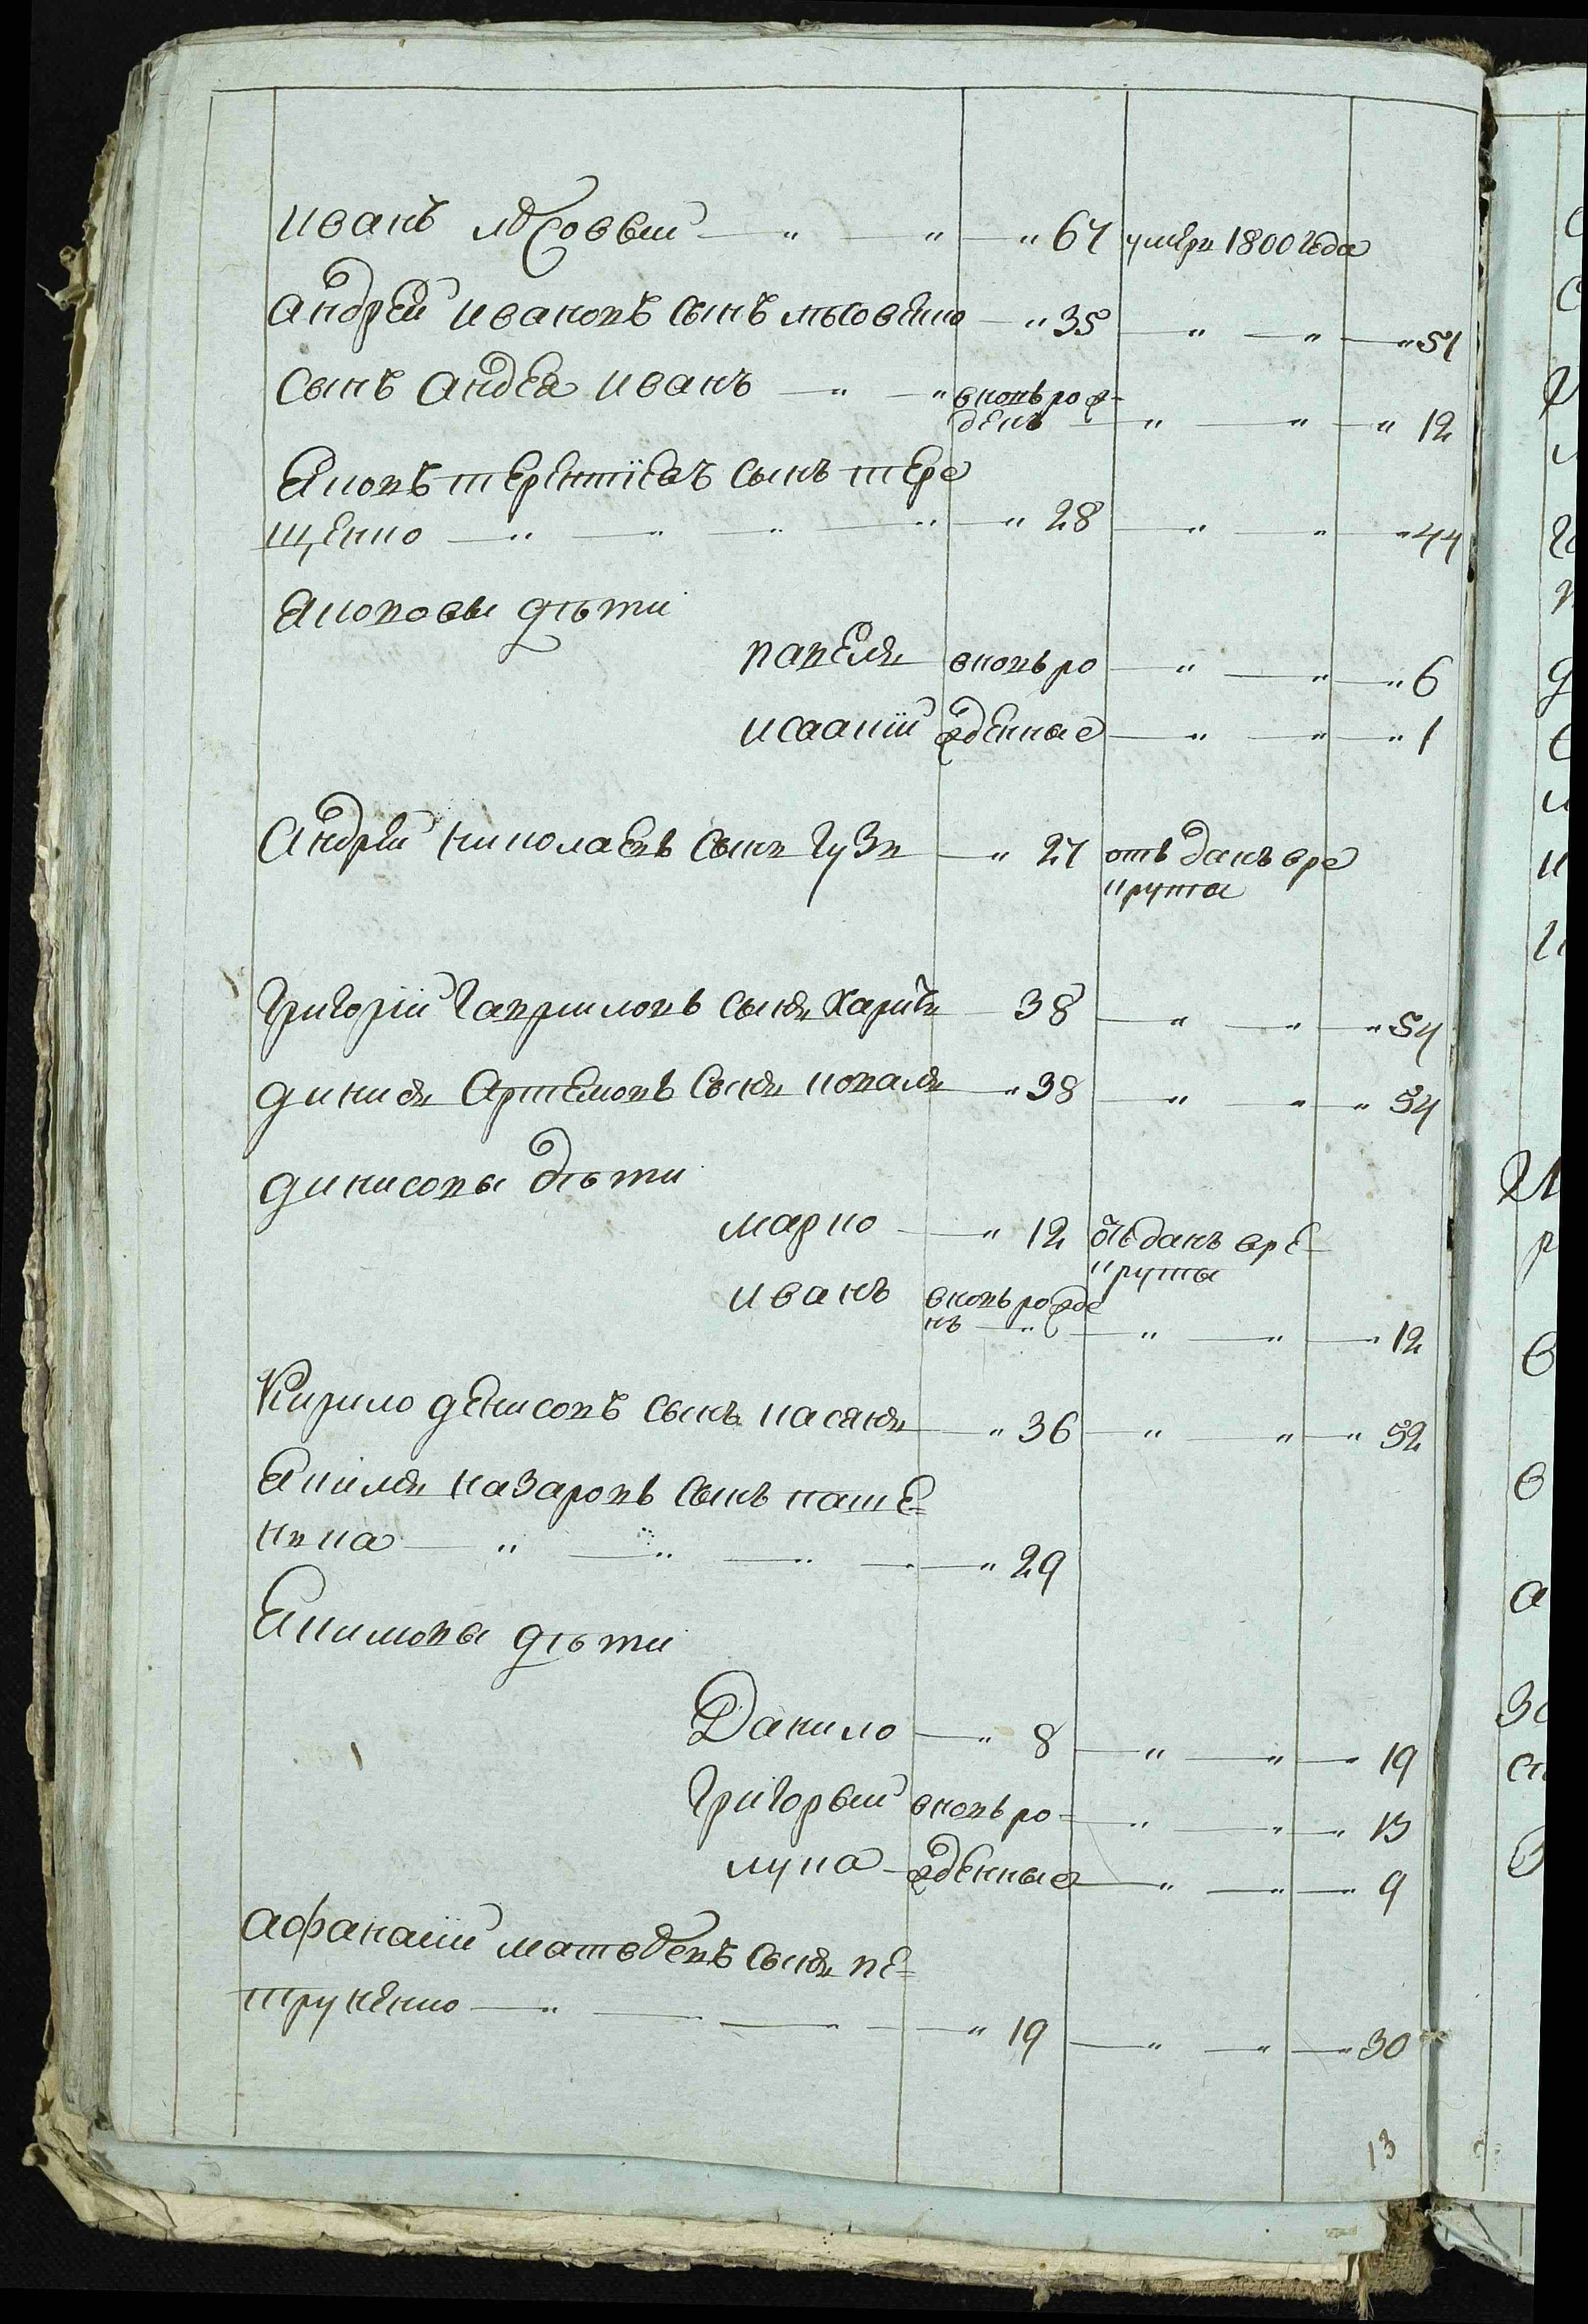 иванъ лѣсовый 67 умеръ 1800 года
андрей ивановъ сынъ лѣсовенко 35 51
сынъ андрея иванъ вновь рож-
денъ 12
Яковъ терентіевъ сынъ тере
щенко 28 44
Якововы дѣти
павелъ вновь ро 6
исаакій жденные 1
Андрей николаевъ сынъ гузъ 27 отъданъ в ре
круты
Григорій гавриловъ сынъ 38 54
динисъ Артемовъ сынъ коваль 38 54
динисовы дѣти
марко 12 отъданъ в ре-
круты
иванъ вновь рожде
нъ 12
Кирило денисовъ сынъ касянъ 36 52
Якимъ назаровъ сынъ
29
Якимовы дѣти
Данило 8 19
григорьий вновь ро= 13
лука жденные 9
афанасій матвѣевъ сынъ пе=
труненко 19 30
13